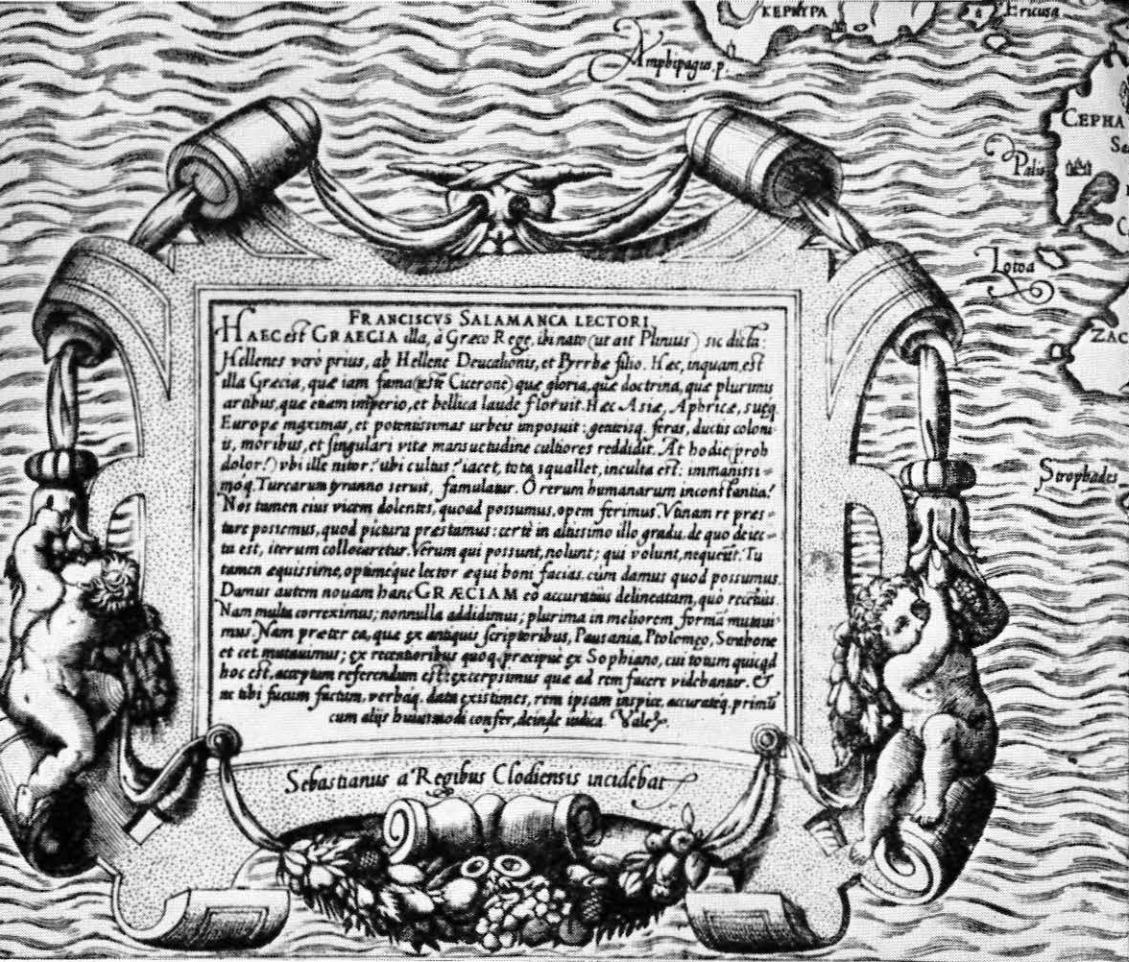 KEPKYPA
Ericusa
Amphipagus.p.
CEPHA
Palis
Lotoa
ZAC
Strophades
FRANCISCVS SALAMANCA LECTORI
HAEC est GRAECIA illa, à Græco Rege, ibi nato (ut ait Plinius) sic dicta:
Hellenes verò prius, ab Hellene Deucalionis, et Pyrrhæ filio. Hæc, inquam, est
illa Græcia, quæ iam fama (teste Cicerone) quę gloria, quę doctrina, quę plurimis
artibus, quę etiam imperio, et bellica laude floruit. Hæc Asiæ, Aphricæ, suęq̃
Europæ maximas, et potentissimas urbeis imposuit: genteisq. feras, ductis coloni-
is, moribus, et singulari vitæ mansuetudine cultiores reddidit. At hodie (proh
dolor!) vbi ille nitor? ubi cultus? iacet, tota squallet, inculta est: immanissi-
moq. Turcarum tyranno seruit, famulatur. O rerum humanarum inconstantia!
Nos tamen eius vicem dolentes, quoad possumus, opem ferimus. Vtinam re præs-
tare possemus, quod pictura præstamus: certè in altissimo illo gradu, de quo deiec-
ta est, iterum collocaretur. Verum qui possunt, nolunt; qui volunt, nequeũt. Tu
tamen æquissime, optimeque lector æqui boni facias, cùm damus quod possumus.
Damus autem nouam hanc GRÆCIAM eò accuratiùs delineatam, quò recẽtiùs.
Nam multa correximus; nonnulla addidimus; plurima in meliorem formã mutaui-
mus. Nam præter ea, quæ ex antiquis scriptoribus, Pausania, Ptolemęo, Strabone
et cet. mutauimus; ex recentioribus quoq. præcipuè ex Sophiano, cui totum quicq̃d
hoc est, acceptum referendum est: excerpsimus quæ ad rem facere videbantur. Et
ne tibi fucum factum, verbaq. data existimes, rem ipsam inspice, accuratèq. primũ
cum alijs huiusmodi confer, deinde iudica. Vale.
Sebastianus a' Regibus Clodiensis incidebat